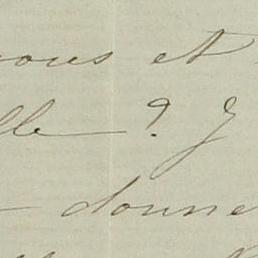 vous et
lle ? J
donne